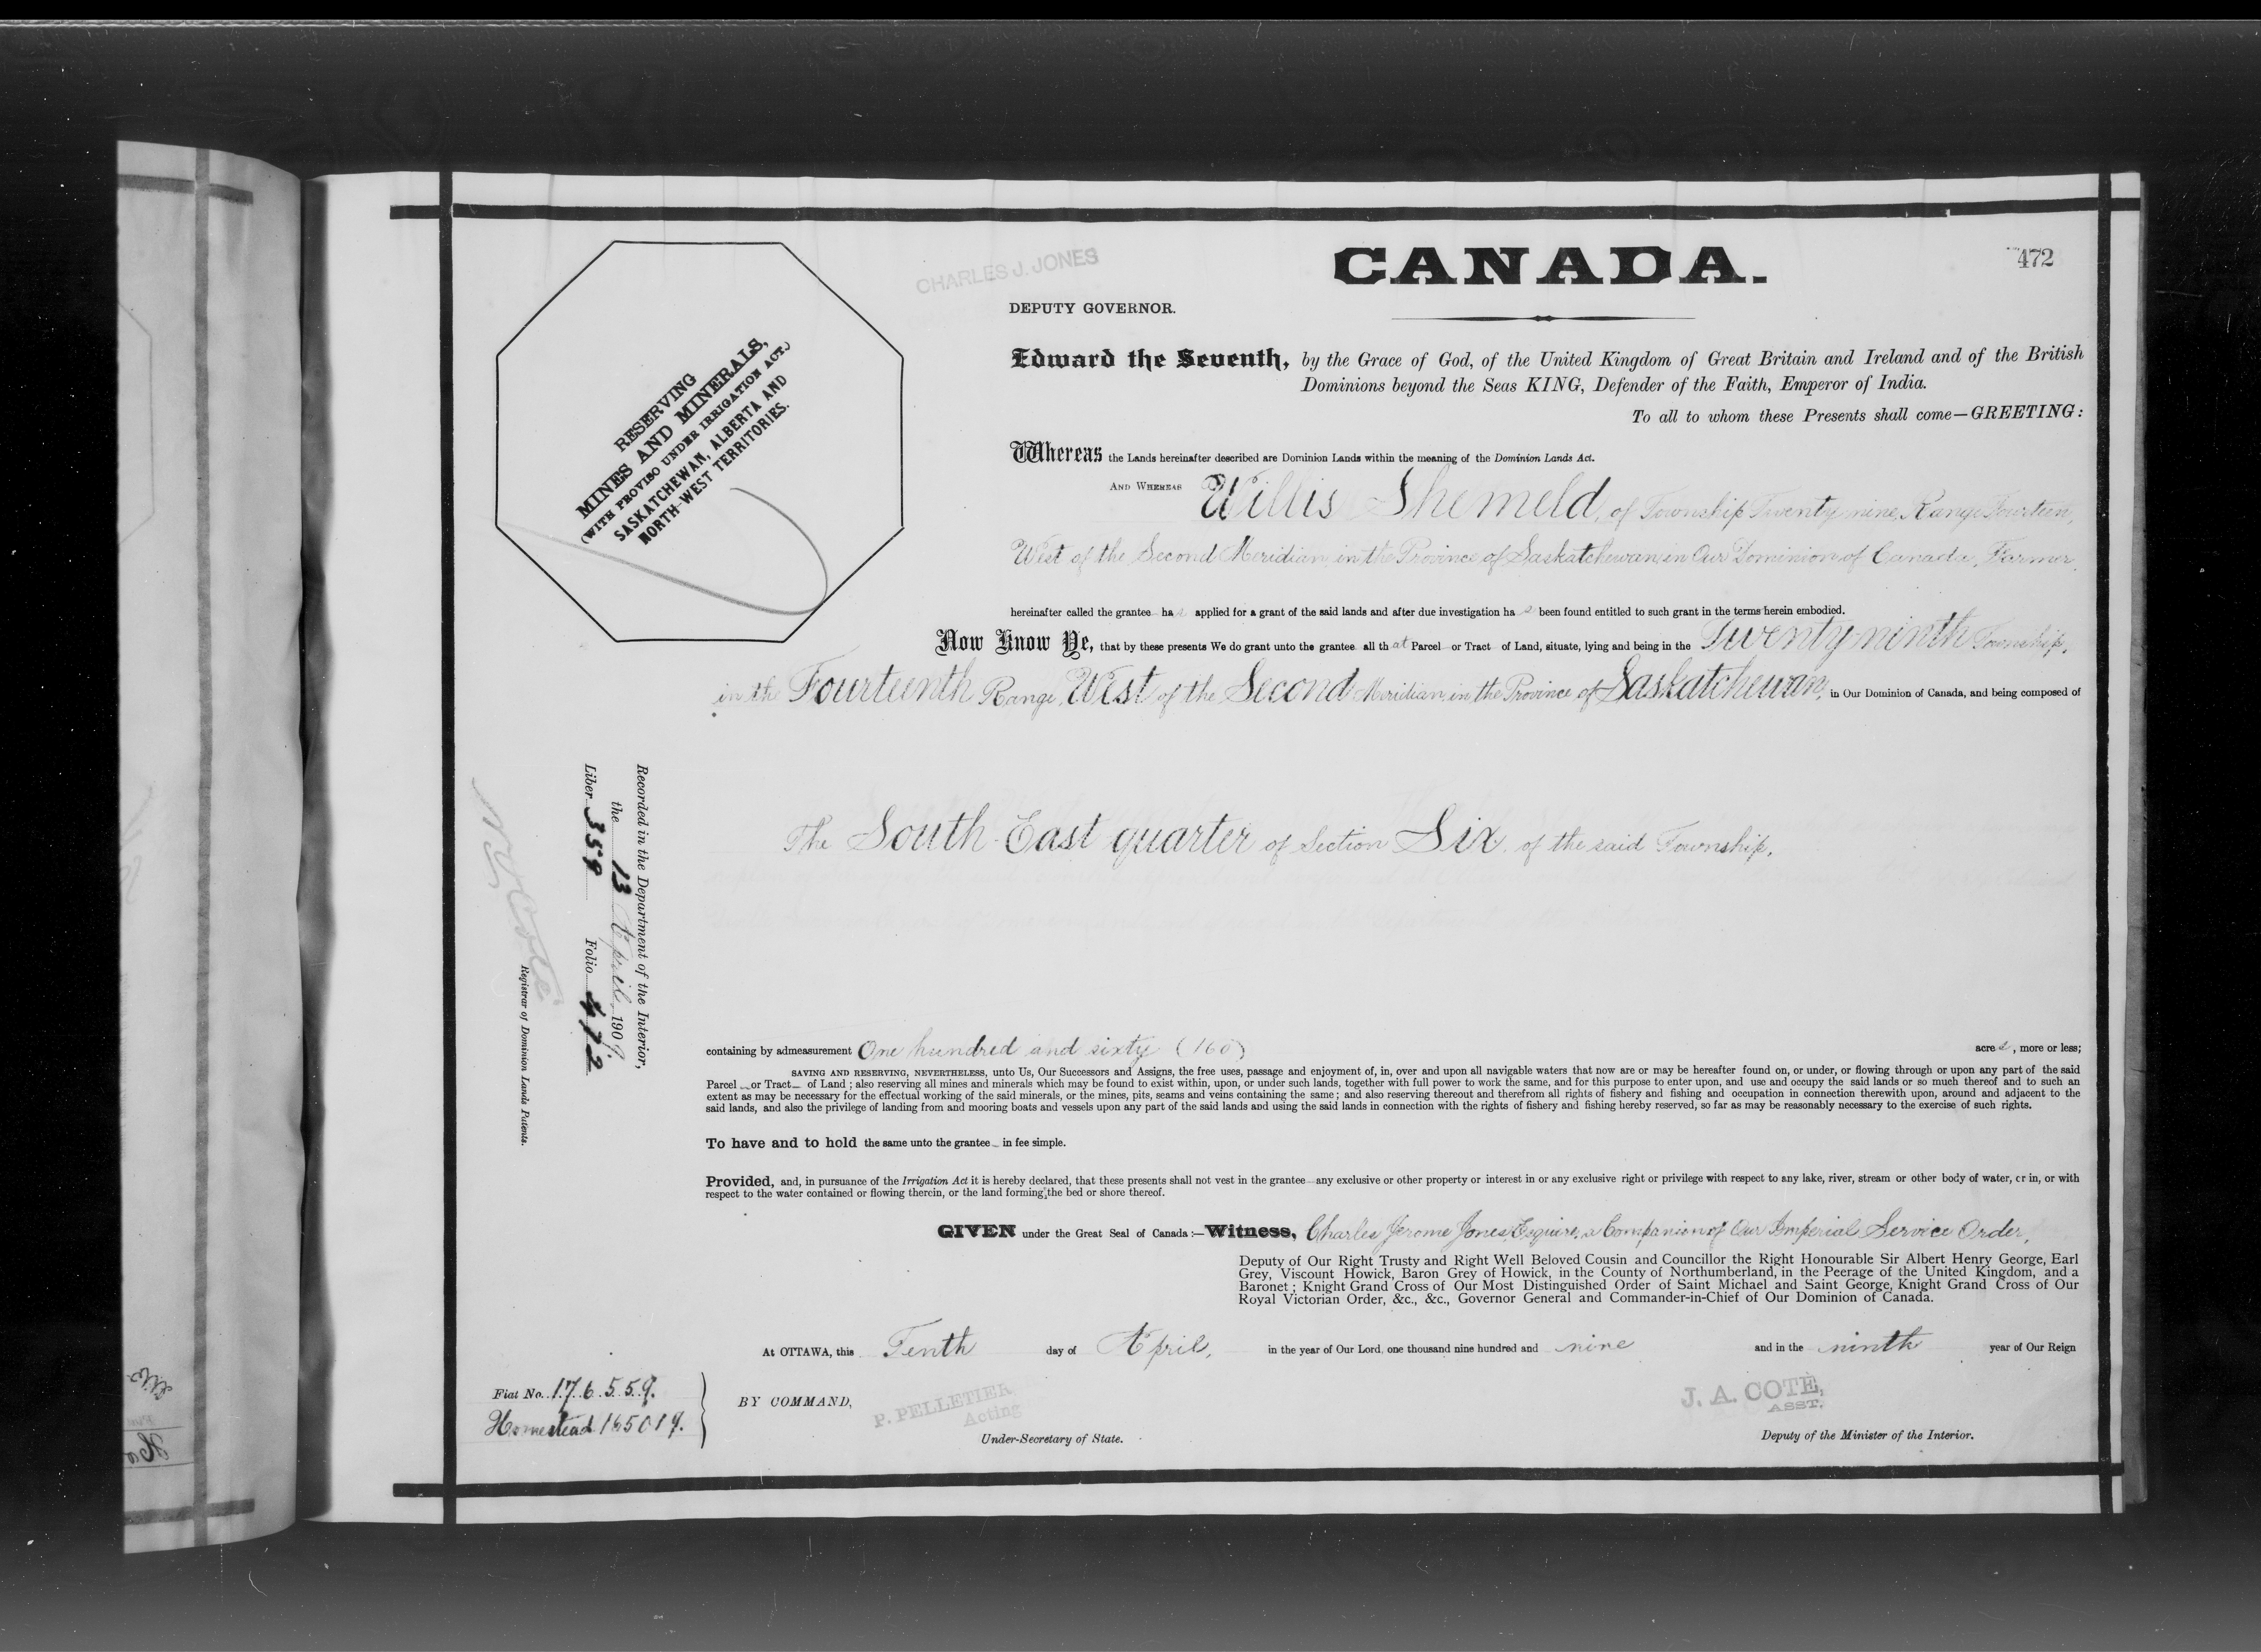 472
CHARLES J. JONES
CANADA.
DEPUTY GOVERNOR.
RESERVING
MINES AND MINERALS,
(WITH PROVISO UNDER IRRIGATION ACT.)
SASKATCHEWAN, ALBERTA AND
NORTH-WEST TERRITORIES.
Edward the Seventh, by the Grace of God, of the United Kingdom of Great Britain and Ireland and of the British
Dominions beyond the Seas KING, Defender of the Faith, Emperor of India.
To all to whom these Presents shall come—GREETING:
Whereas the Lands hereinafter described are Dominion Lands within the meaning of the Dominion Lands Act.
AND WHEREAS Willis Shemeld, of Township Twenty nine, Range Fourteen,
West of the Second Meridian, in the Province of Saskatchewan, in Our Dominion of Canada, Farmer,
hereinafter called the grantee has applied for a grant of the said lands and after due investigation has been found entitled to such grant in the terms herein embodied.
Now Know Ye, that by these presents We do grant unto the grantee all that Parcel or Tract of Land, situate, lying and being in the Twenty ninth Township,
in the Fourteenth Range, West of the Second Meridian, in the Province of Saskatchewan, in Our Dominion of Canada, and being composed of
The South East quarter of Section Six, of the said Township,
Recorded in the Department of the Interior,
the 13 April, 1909.
Liber 359 Folio 472
N O Coté
Registrar of Dominion Lands Patents.
containing by admeasurement One hundred and sixty (160) acres, more or less;
SAVING AND RESERVING, NEVERTHELESS, unto Us, Our Successors and Assigns, the free uses, passage and enjoyment of, in, over and upon all navigable waters that now are or may be hereafter found on, or under, or flowing through or upon any part of the said
Parcel or Tract of Land; also reserving all mines and minerals which may be found to exist within, upon, or under such lands, together with full power to work the same, and for this purpose to enter upon, and use and occupy the said lands or so much thereof and to such an
extent as may be necessary for the effectual working of the said minerals, or the mines, pits, seams and veins containing the same; and also reserving thereout and therefrom all rights of fishery and fishing and occupation in connection therewith upon, around and adjacent to the
said lands, and also the privilege of landing from and mooring boats and vessels upon any part of the said lands and using the said lands in connection with the rights of fishery and fishing hereby reserved, so far as may be reasonably necessary to the exercise of such rights.
To have and to hold the same unto the grantee in fee simple.
Provided, and, in pursuance of the Irrigation Act it is hereby declared, that these presents shall not vest in the grantee any exclusive or other property or interest in or any exclusive right or privilege with respect to any lake, river, stream or other body of water, or in, or with
respect to the water contained or flowing therein, or the land forming the bed or shore thereof.
GIVEN under the Great Seal of Canada:—Witness, Charles Jerome Jones, Esquire, a Companion of Our Imperial Service Order,
Deputy of Our Right Trusty and Right Well Beloved Cousin and Councillor the Right Honourable Sir Albert Henry George, Earl
Grey, Viscount Howick, Baron Grey of Howick, in the County of Northumberland, in the Peerage of the United Kingdom, and a
Baronet; Knight Grand Cross of Our Most Distinguished Order of Saint Michael and Saint George, Knight Grand Cross of Our
Royal Victorian Order, &c., &c., Governor General and Commander-in-Chief of Our Dominion of Canada.
At OTTAWA, this Tenth day of April, in the year of Our Lord, one thousand nine hundred and nine and in the ninth year of Our Reign
Fiat No. 176559.
Homestead 165019.
BY COMMAND,
P. PELLETIER,
Acting
Under-Secretary of State.
J. A. COTÉ,
ASST.
Deputy of the Minister of the Interior.